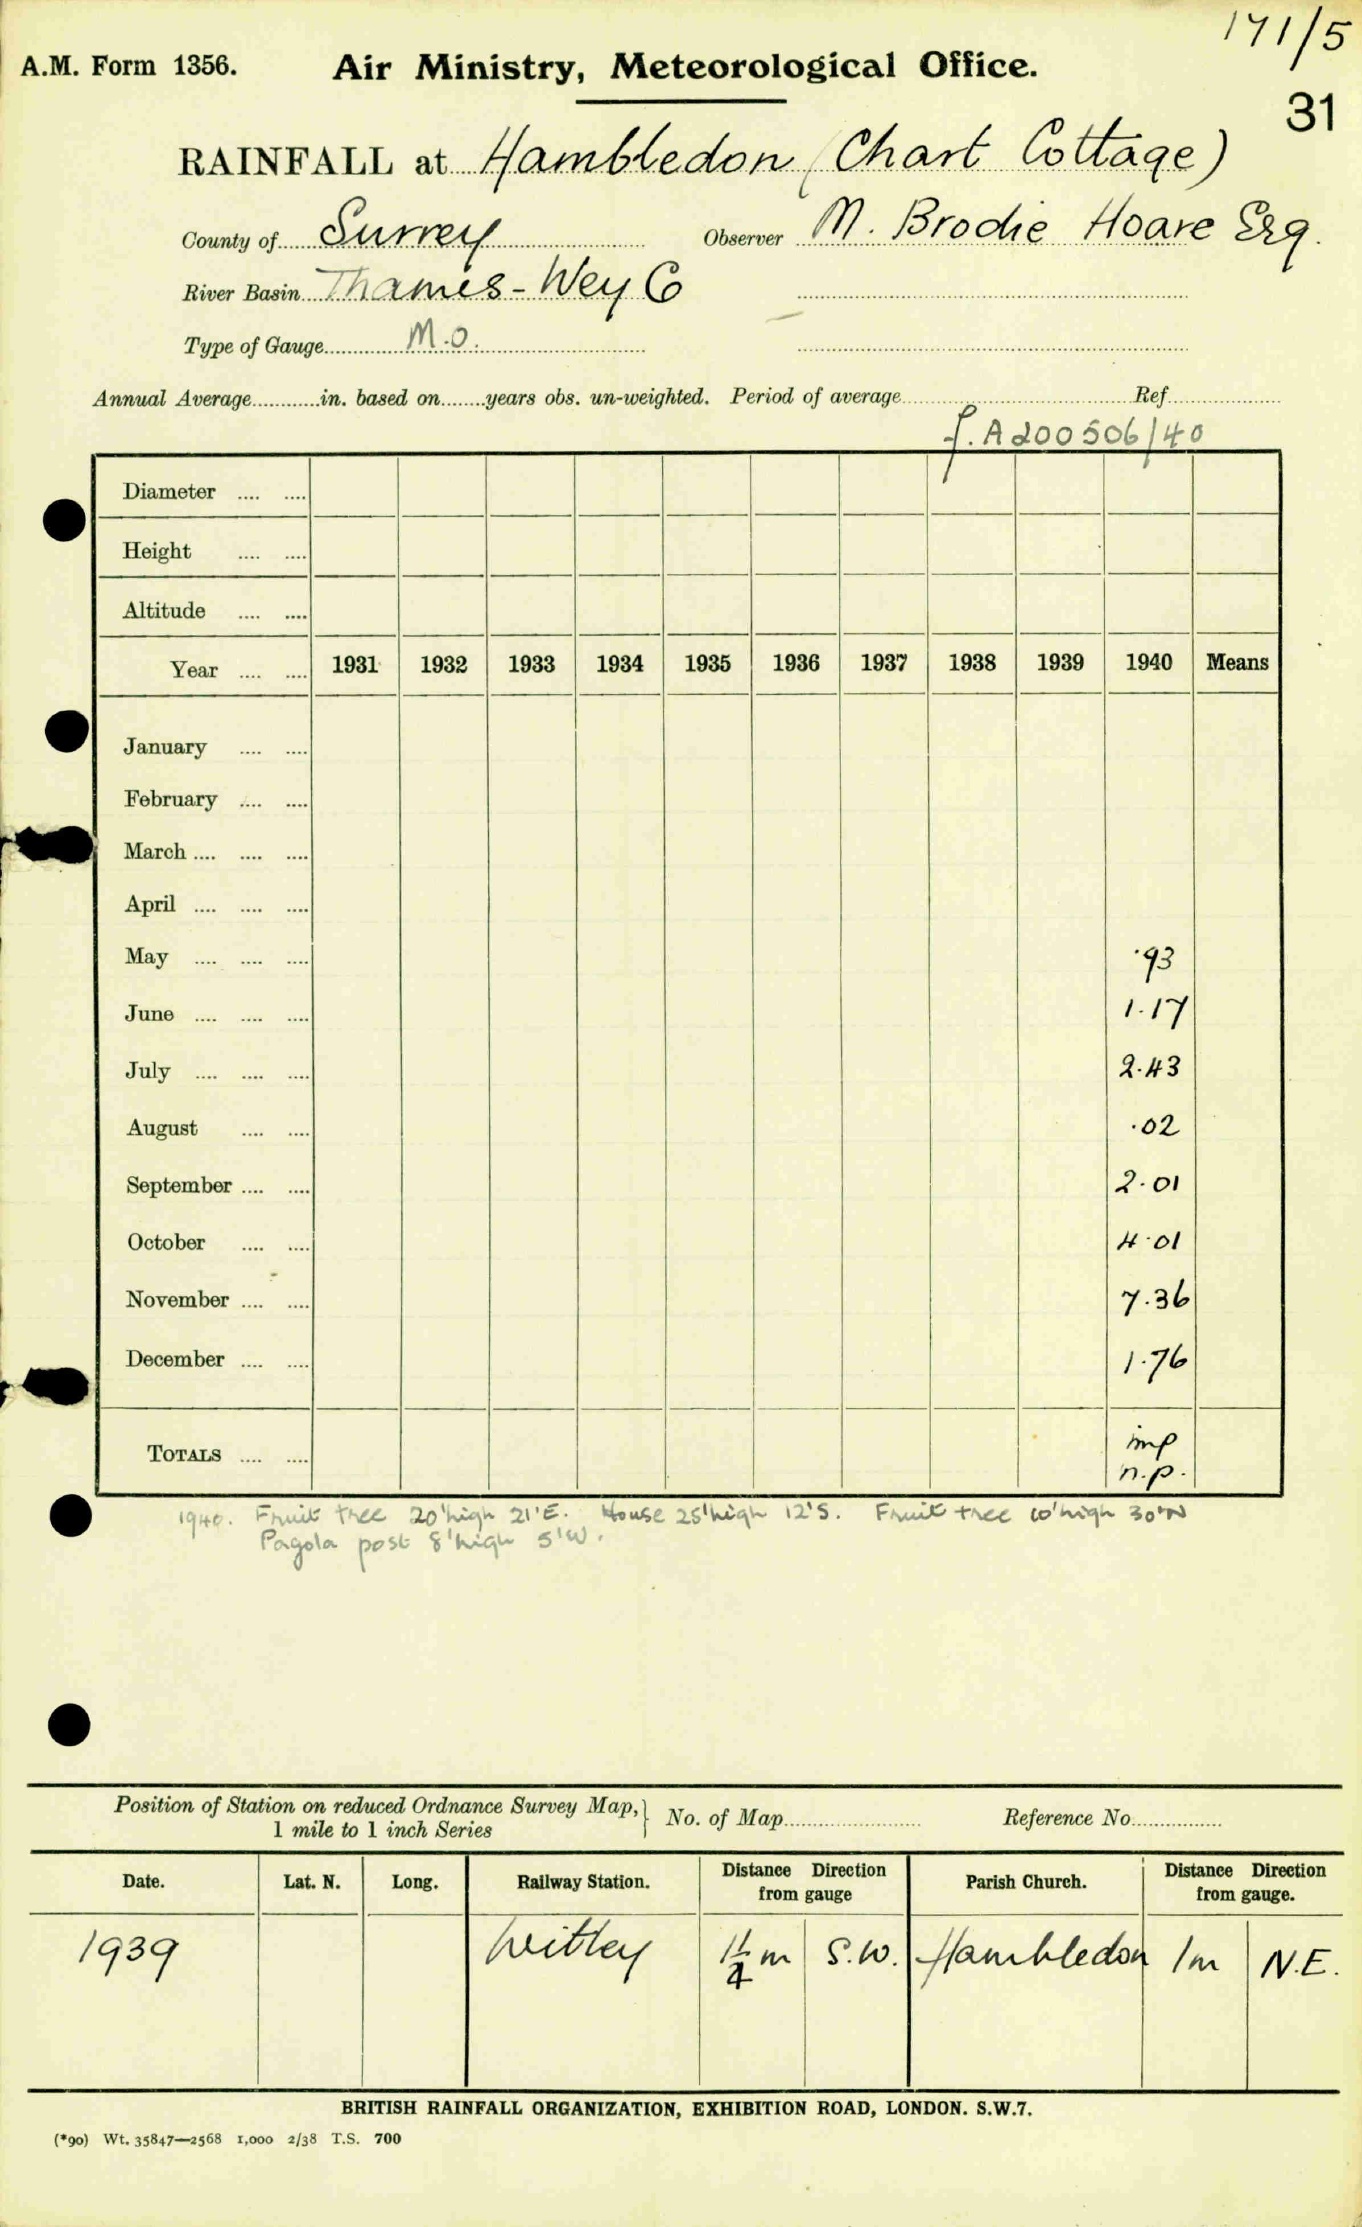 171/5
A.M. Form 1356. Air Ministry, Meteorological Office.
31
RAINFALL at Hambledon (Chart Cottage)
County of Surrey Observer M. Brodie Hoare Esq.
River Basin Thames - Wey C
Type of Gauge M.O.
Annual Average in. based on years obs. un-weighted. Period of average Ref
f. A200506/40
Diameter
Height
Altitude
Year 1931 1932 1933 1934 1935 1936 1937 1938 1939 1940 Means
January
February
March
April
May .93
June 1.17
July 2.43
August .02
September 2.01
October 4.01
November 7.36
December 1.76
TOTALS imp
n.p.
1940. Fruit tree 20' high 21' E. House 25' high 12' S. Fruit tree 10' high 30' N
Pagola post 8' high 5' W.
Position of Station on reduced Ordnance Survey Map, } No. of Map Reference No.
1 mile to 1 inch Series
Date. Lat. N. Long. Railway Station. Distance Direction from gauge Parish Church. Distance Direction from gauge.
1939 Witley 1 1/4 m S.W. Hambledon 1m N.E.
BRITISH RAINFALL ORGANIZATION, EXHIBITION ROAD, LONDON. S.W.7.
(*90) Wt. 35847—2568 1,000 2/38 T.S. 700